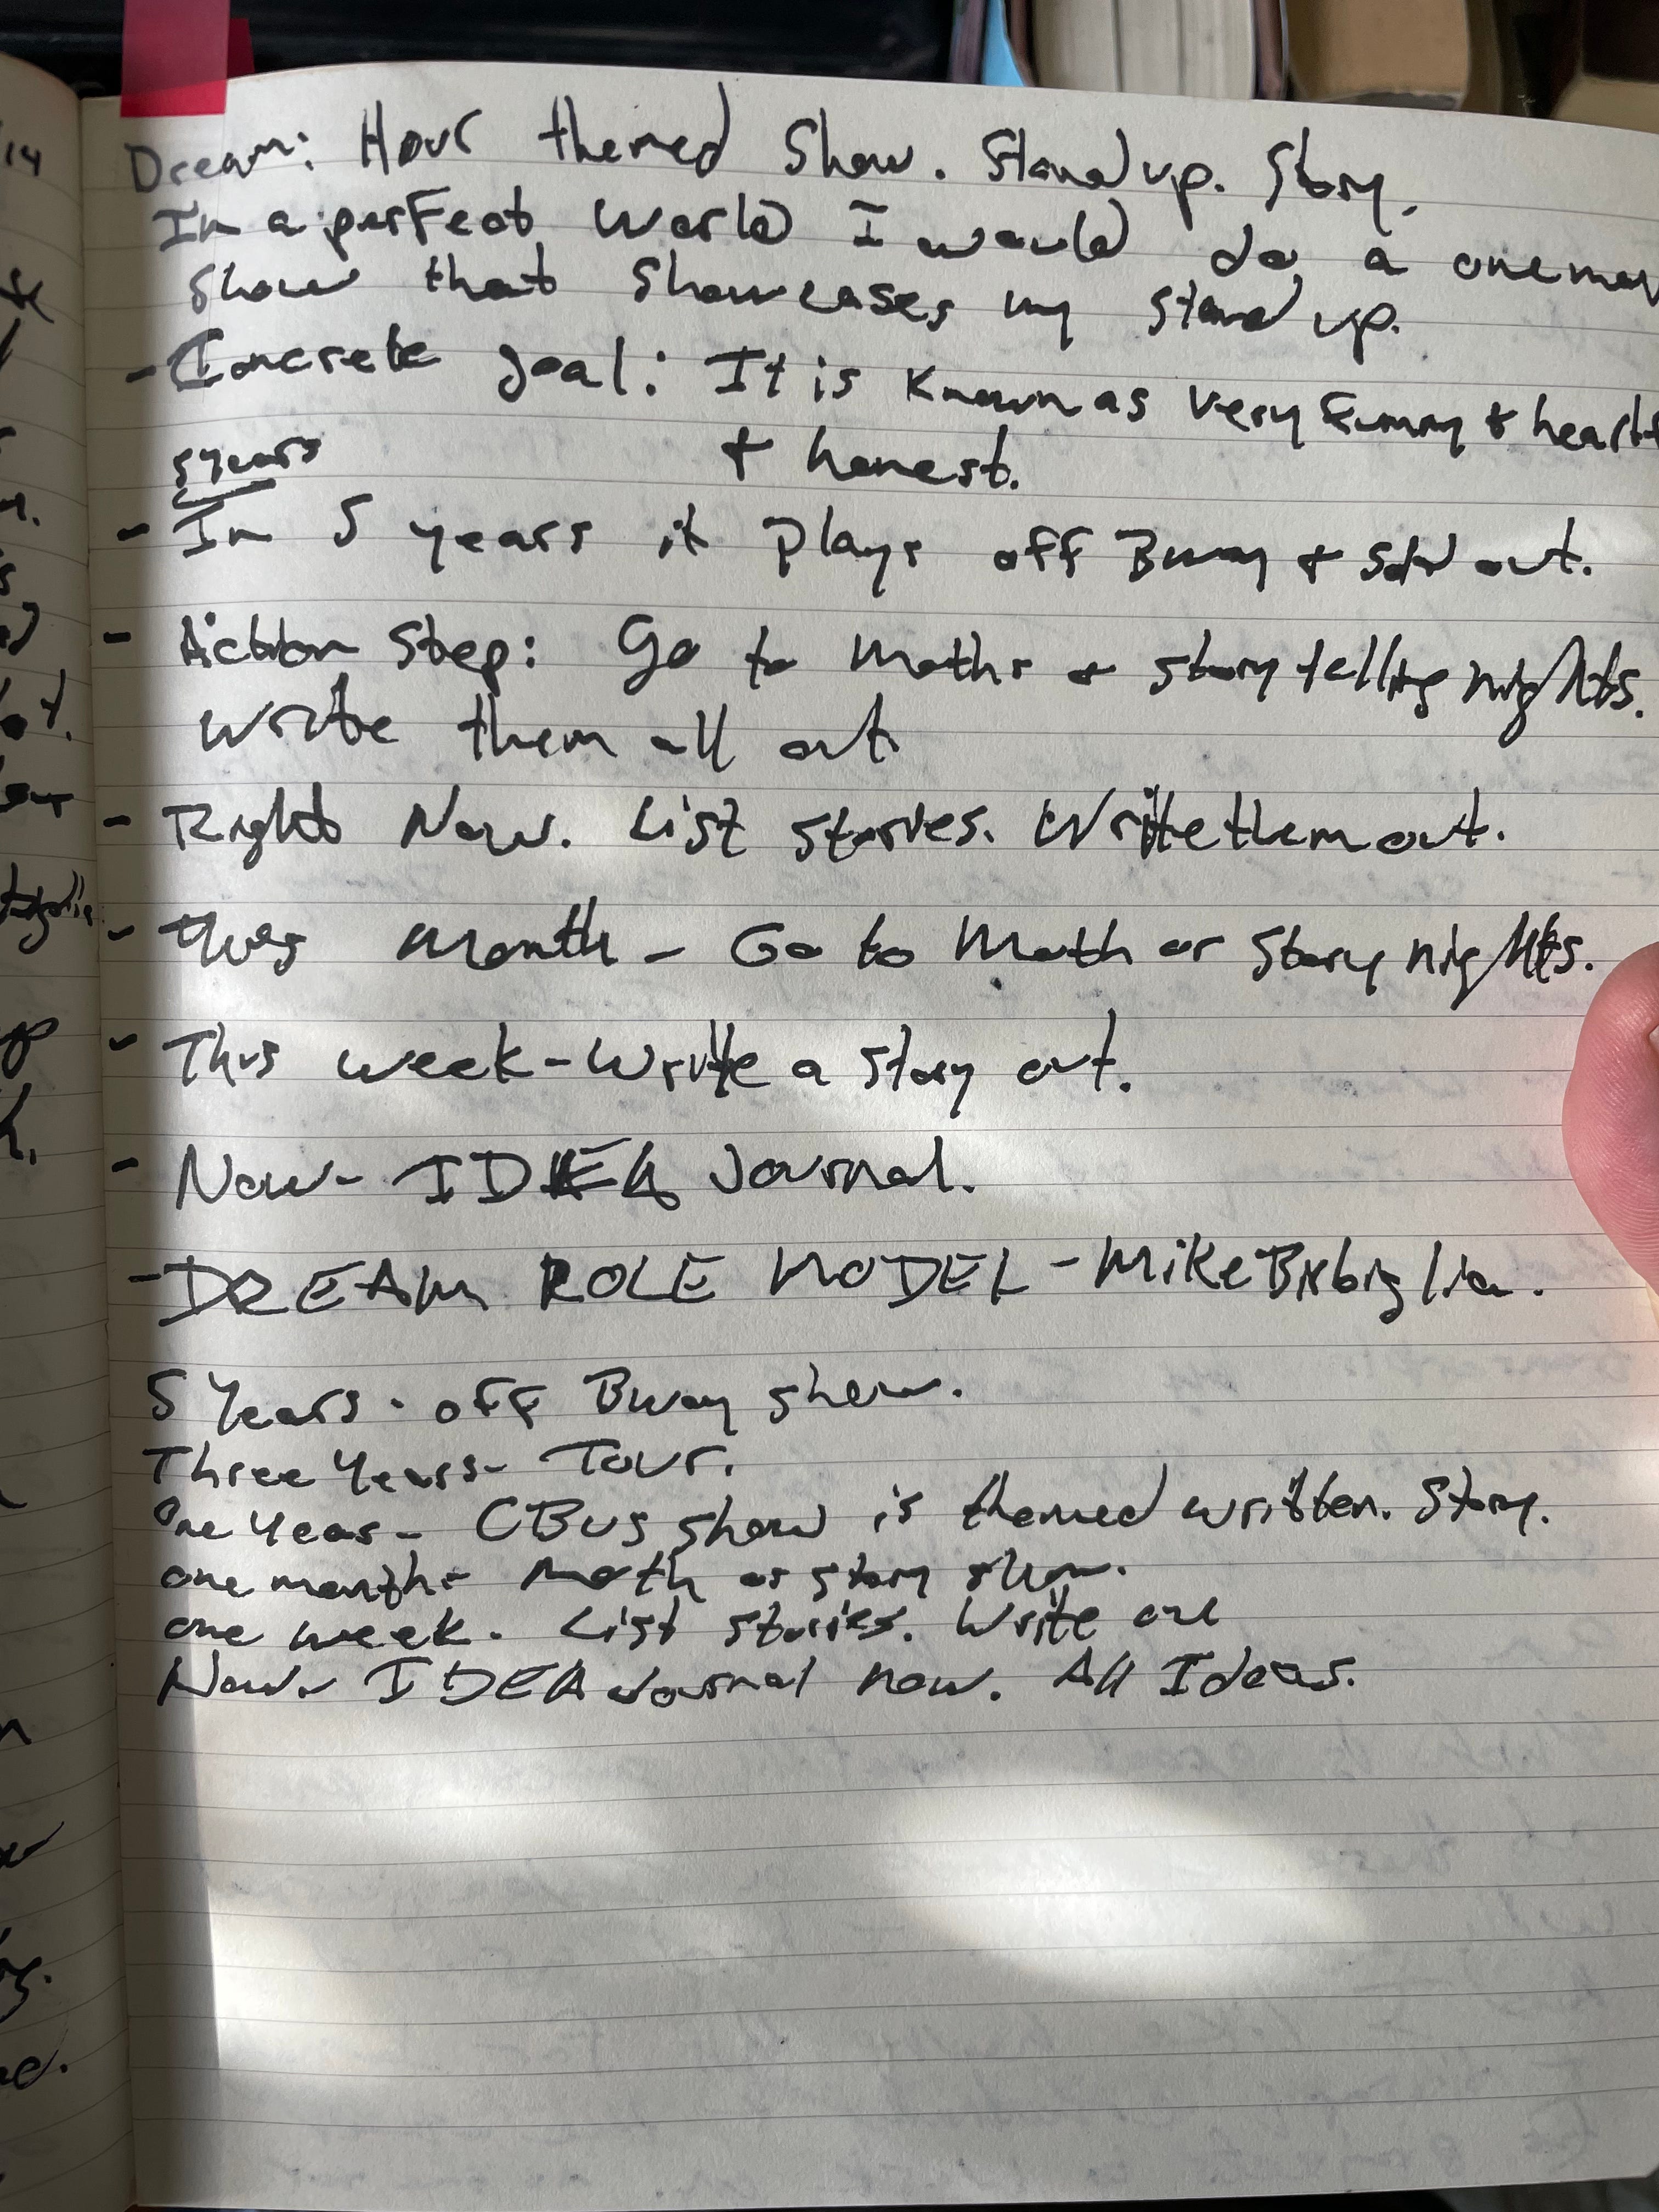 Dream: Hour themed Show. Standup. Story.
In a perfect World I would do a oneman
Show that Showcases my Stand up.
- Concrete goal: It is Known as Very Funny + heart
5 years + honest.
- In 5 years it Plays off Bway + Sold out.
- Action Step: Go to Moths + story telling nights.
Write them all out
- Right Now. List Stories. Write them out.
- This Month - Go to Moth or Story nights.
- This week - Write a Story out.
- Now - IDEA Journal.
- DREAM ROLE MODEL - Mike Birbiglia.
5 Years - off Bway show.
Three Years - Tour.
One Year - CBus show is themed written. Story.
one month - Moth or story show.
one week. List stories. Write one
Now - IDEA Journal now. All Ideas.
14